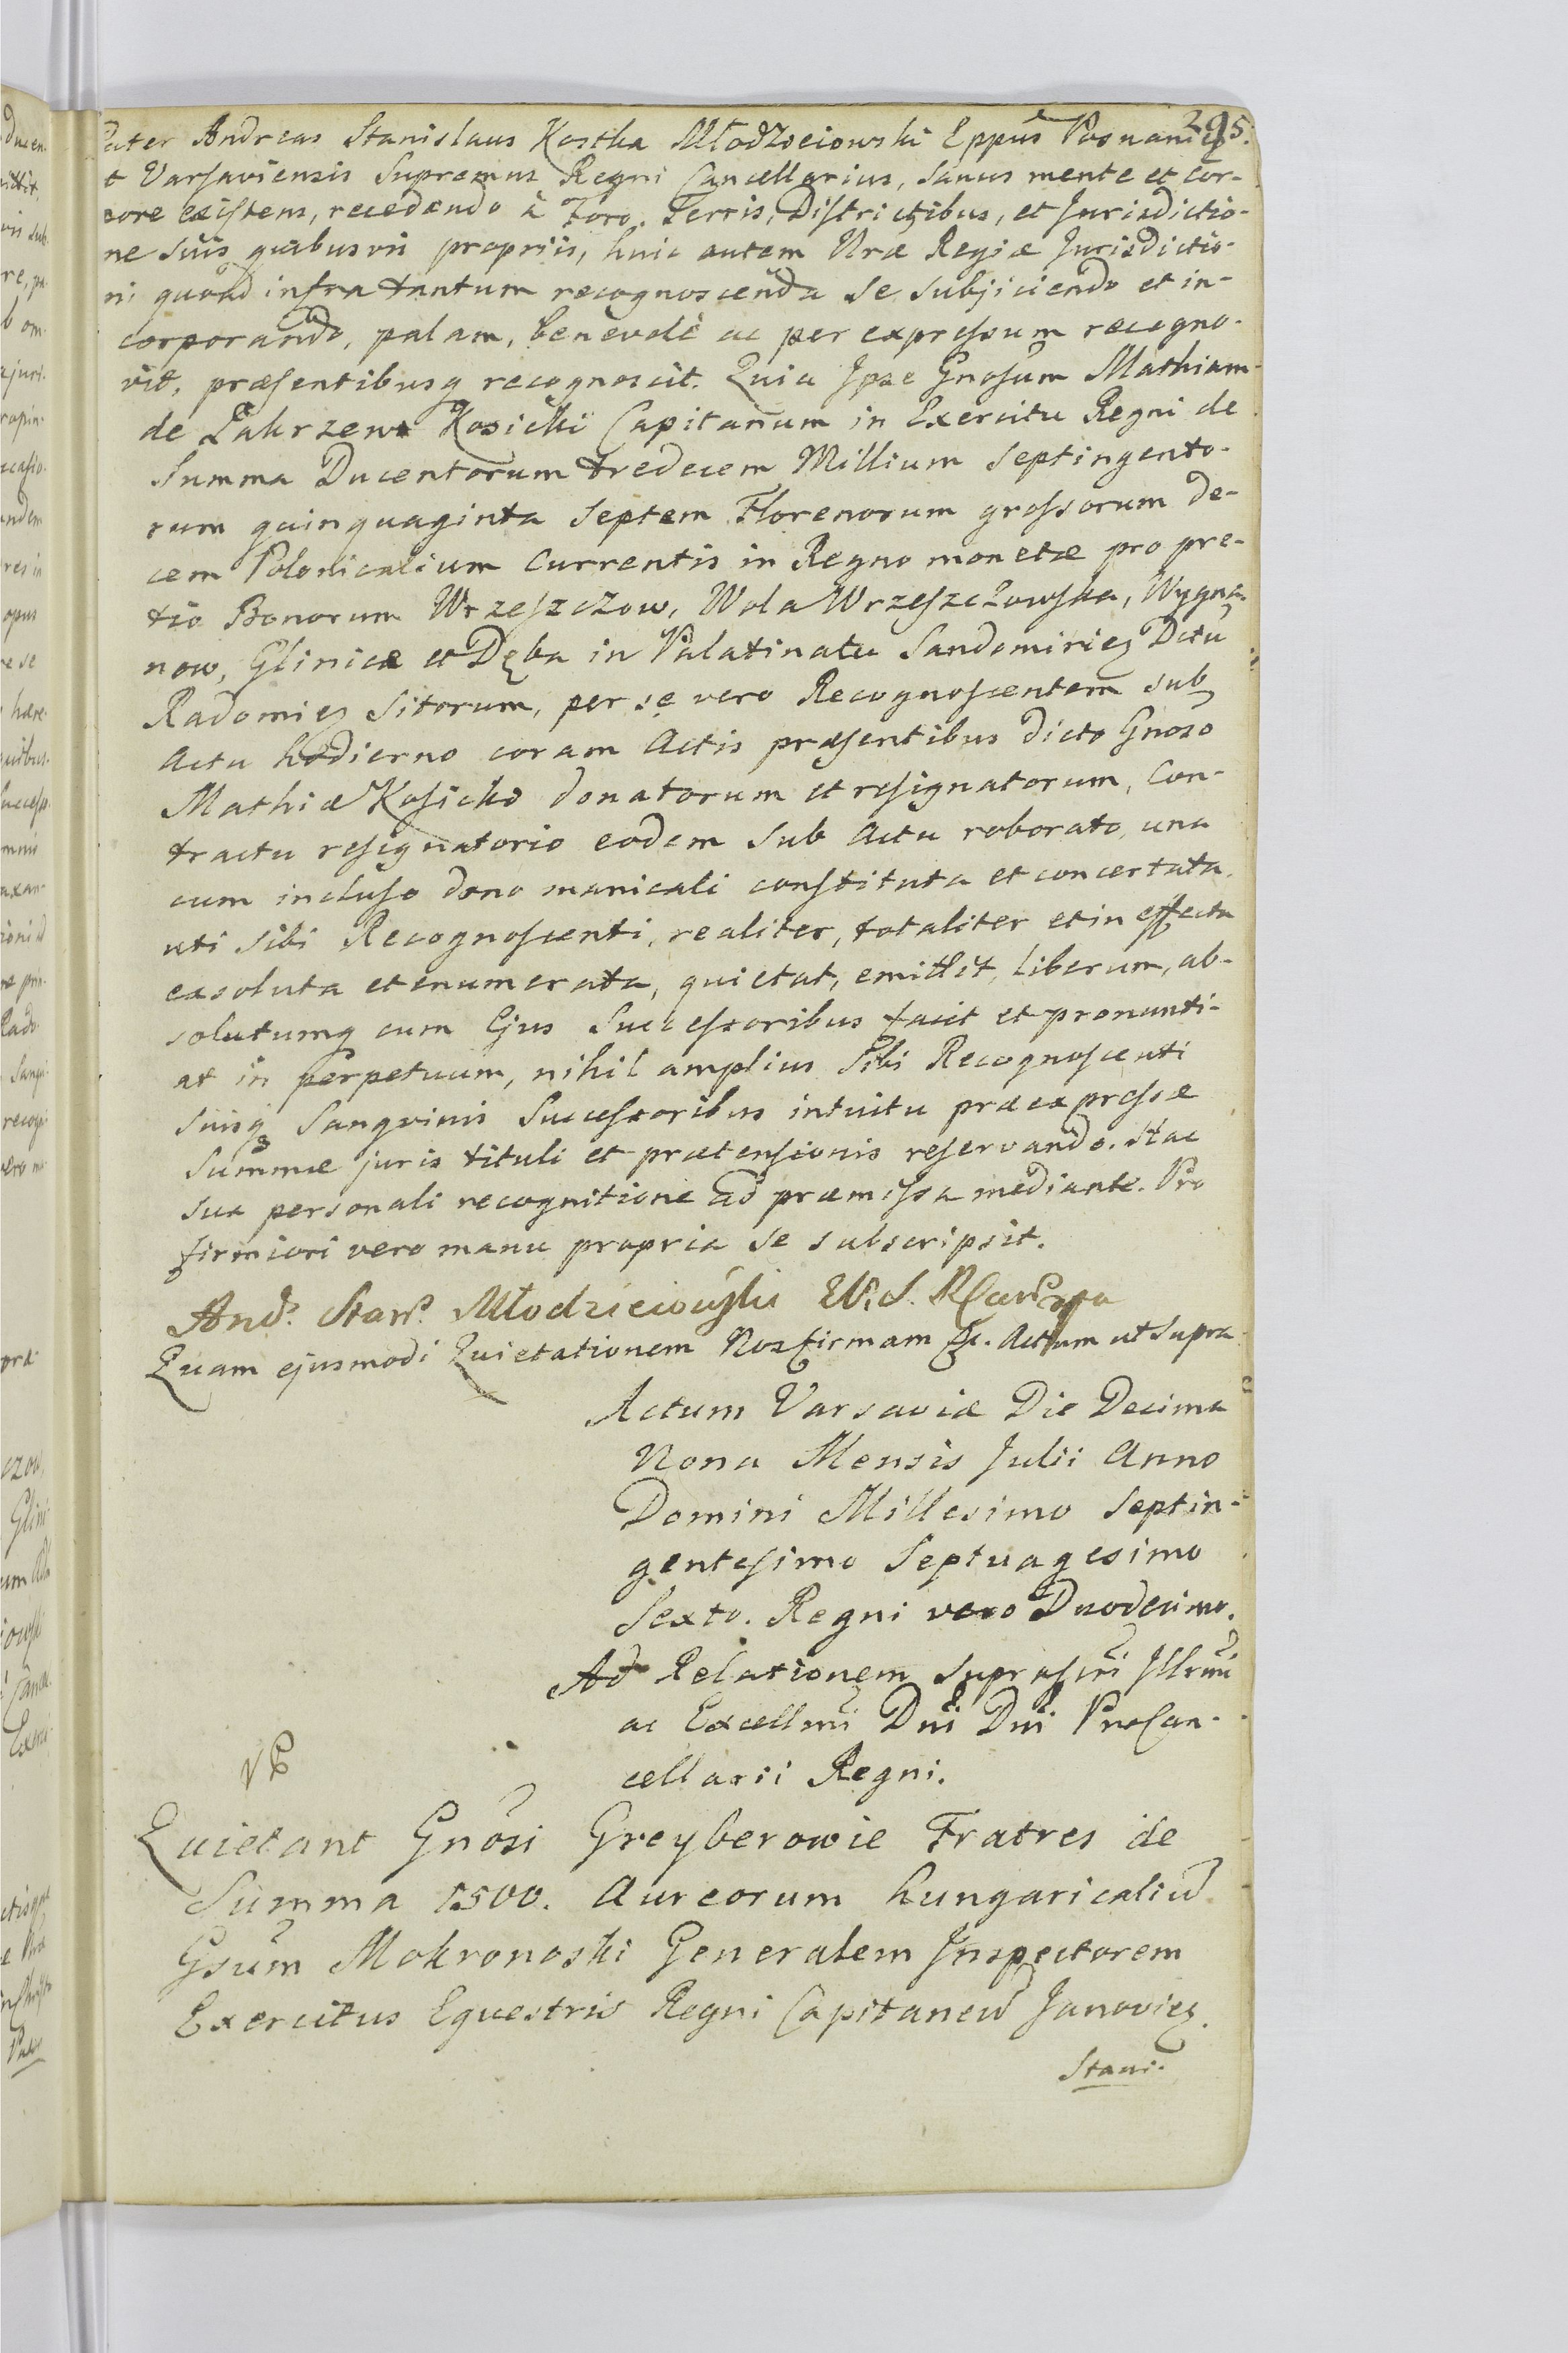 295.
Pater Andreas Stanislaus Kostka Młodzieiowski Eppus Posnanieȝ
et Varsaviensis Supremus Regni Cancellarius, sanus mente et cor-
pore existens, recedendo à Foro, Terris, Districtibus, et Jurisdictio-
ne suis quibusvis propriis, huic autem Nræ Regiæ Jurisdictio-
ni quoad infra tantum recognoscenda se subjiciendo et in-
corporando, palam, benevolè ac per expressum recogno-
vit, præsentibusq recognoscit. Quia Ipse Gnosum Mathiam
de Zakrzew Kosicki Capitanum in Exercitu Regni de
Summa Ducentorum tredecem Millium Septingento-
rum quinquaginta Septem Florenorum grossorum de-
cem Polonicalium Currentis in Regno monetæ pro pre-
tio Bonorum Wrzeszczow, Wola Wrzeszczowska, Wygna-
now, Glinice et Dęba in Palatinatu Sandomirieȝ Dctu
Radomieȝ Sitorum, per se vero Recognoscentem sub
Actu hodierno coram Actis præsentibus dicto Gnoso
Mathiæ Kosicko donatorum et resignatorum, Con-
tractu resignatorio eodem Sub Actu roborato, una
cum incluso dono manicali constituta et concertata,
uti sibi Recognoscenti, realiter, totaliter et in effectu
exsoluta et enumerata, quietat, emittit, liberum, ab-
solutumq cum Ejus Successoribus facit et pronunti-
at in perpetuum, nihil amplius Sibi Recognoscenti
Suisq Sangvinis Successoribus intuitu præexpressæ
Summæ juris tituli et prætensionis reservando. Hac
sua personali recognitione ad præmissa mediante. Pro
firmiori vero manu propria se subscripsit.
And. Stan. Młodzieiowski
Quam ejusmodi Quietationem Nos firmam &c. Actum ut supra
Actum Varsaviæ Die Decima
Nona Mensis Julii Anno
Domini Millesimo Septin-
gentesimo Septuagesimo
Sexto. Regni vero Duodecimo.
Ad Relationem suprascri Illrmi
ac Excellmi Dni Dni ProCan-
cellarii Regni.
Quietant Gnosi Greyberowie Fratres de
Summa 1500. Aureorum hungaricaliu
Gsum Mokronoski Generalem Inspectorem
Exercitus Equestris Regni Capitaneu Janovieȝ.
Stani-